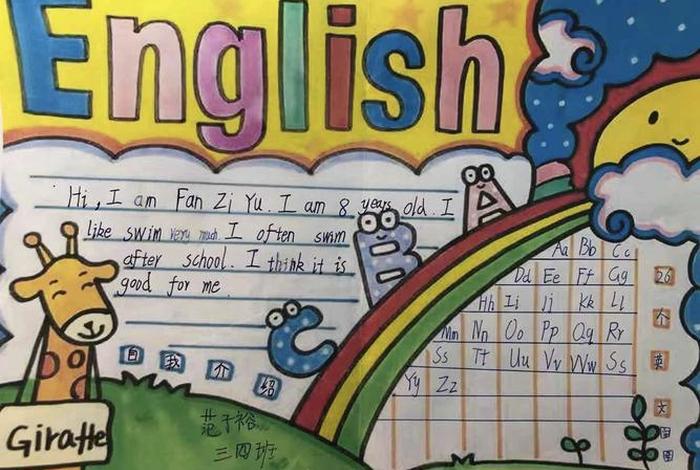 English
Hi, I am Fan Zi Yu. I am 8 years old. I
like swim very much. I often swim
after school. I think it is
good for me.
A
B
C
自我介绍
Giraffe
范子裕
三四班
Aa Bb Cc
Dd Ee Ff Gg
Hh Ii Jj Kk Ll
Mm Nn Oo Pp Qq Rr
Ss Tt Uu Vv Ww Ss
Yy Zz
26
个
英
文
字
母